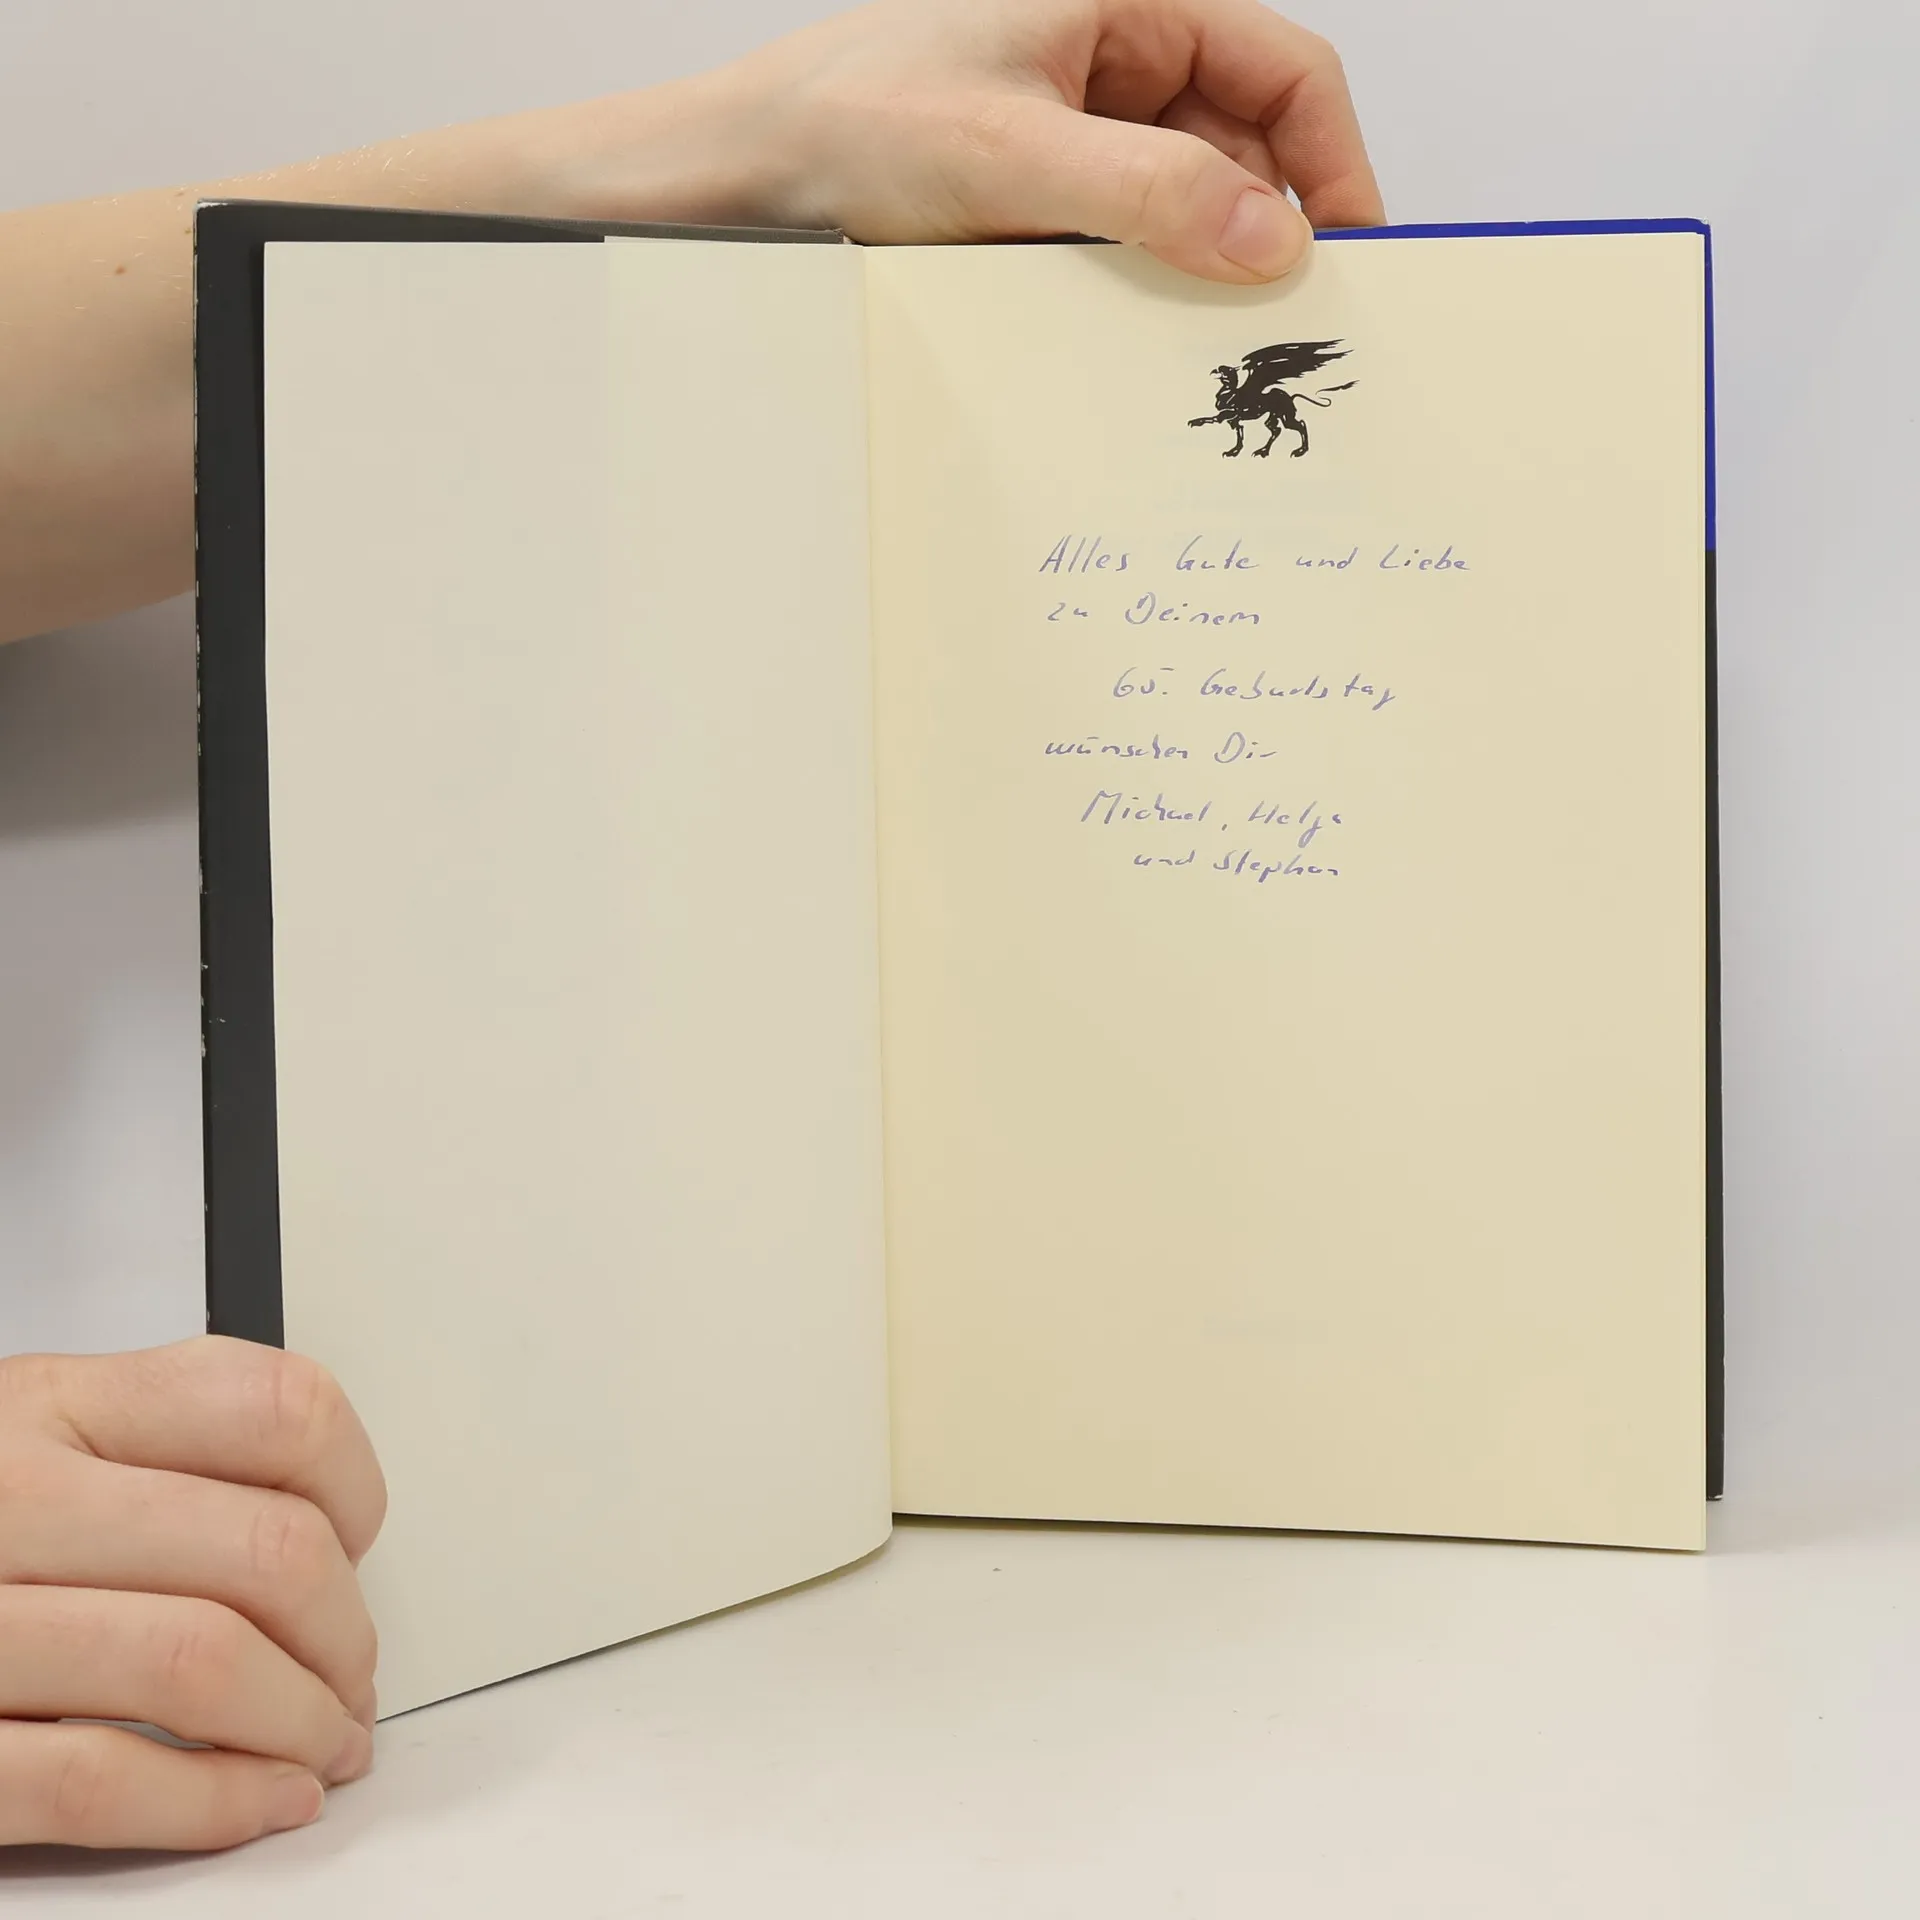 Alles Gute und Liebe
zu Deinem
65. Geburtstag
wünschen Dir
Michael, Helga
und Stephan